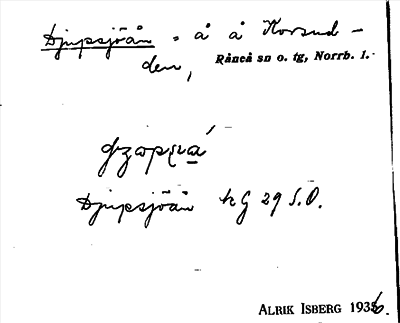 Djupsjöån, å å Korsud-
den,
Råneå sn o. tg, Norrb. l.
Djupsjöån kG 29 S.O.
ALRIK ISBERG 1936.